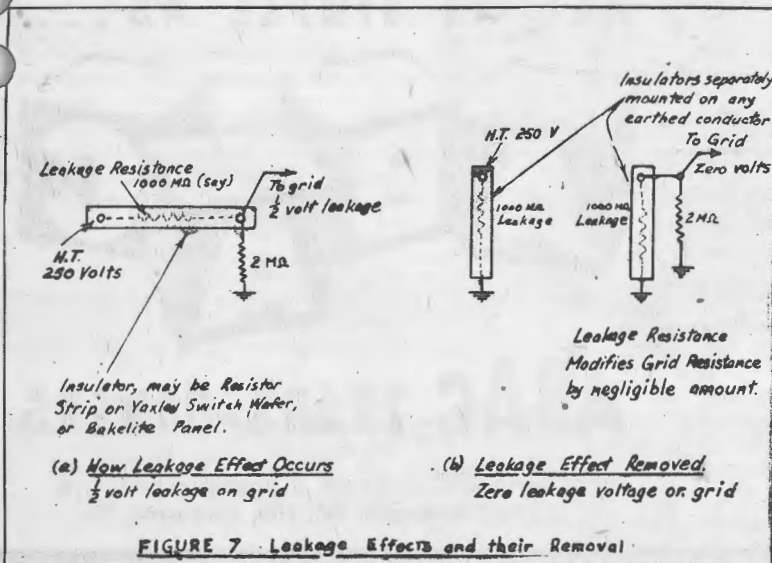 Leakage Resistance
1000 MΩ (say)
To grid
½ volt leakage
H.T.
250 Volts
2 MΩ
Insulator, may be Resistor
Strip or Yaxley Switch Wafer,
or Bakelite Panel.
(a) How Leakage Effect Occurs
½ volt leakage on grid
Insulators separately
mounted on any
earthed conductor
H.T. 250 V
To Grid
Zero volts
1000 MΩ
Leakage
1000 MΩ
Leakage
2 MΩ
Leakage Resistance
Modifies Grid Resistance
by negligible amount.
(b) Leakage Effect Removed.
Zero leakage voltage on grid
FIGURE 7 Leakage Effects and their Removal